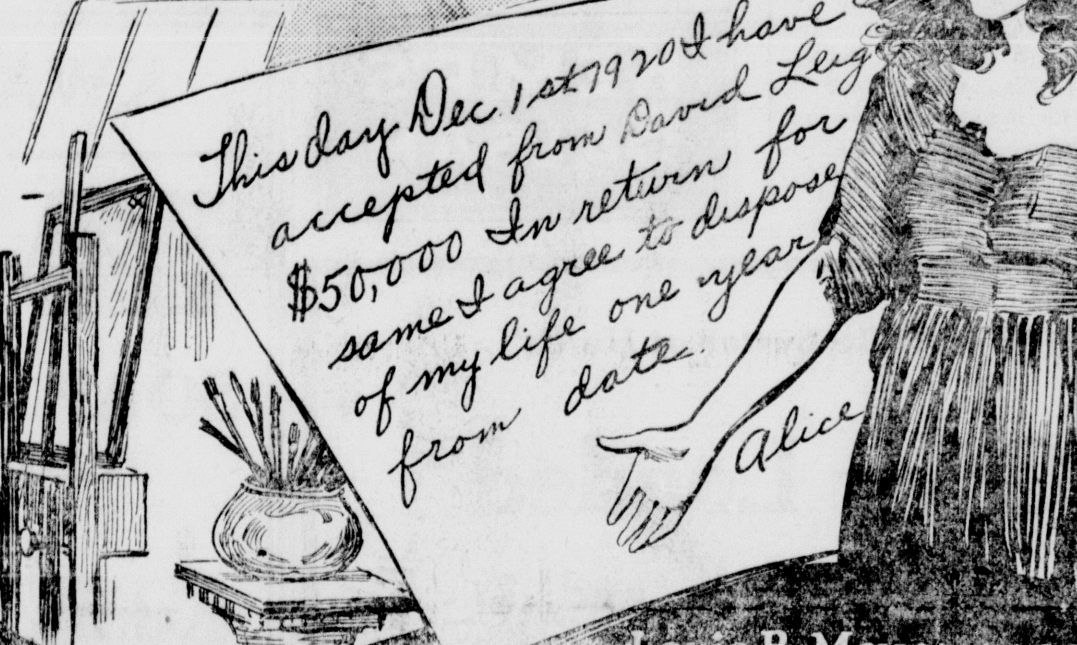 This day Dec. 1st 1920 I have
accepted from David Leig
$50,000 In return for
same I agree to dispose
of my life one year
from date.
Alice